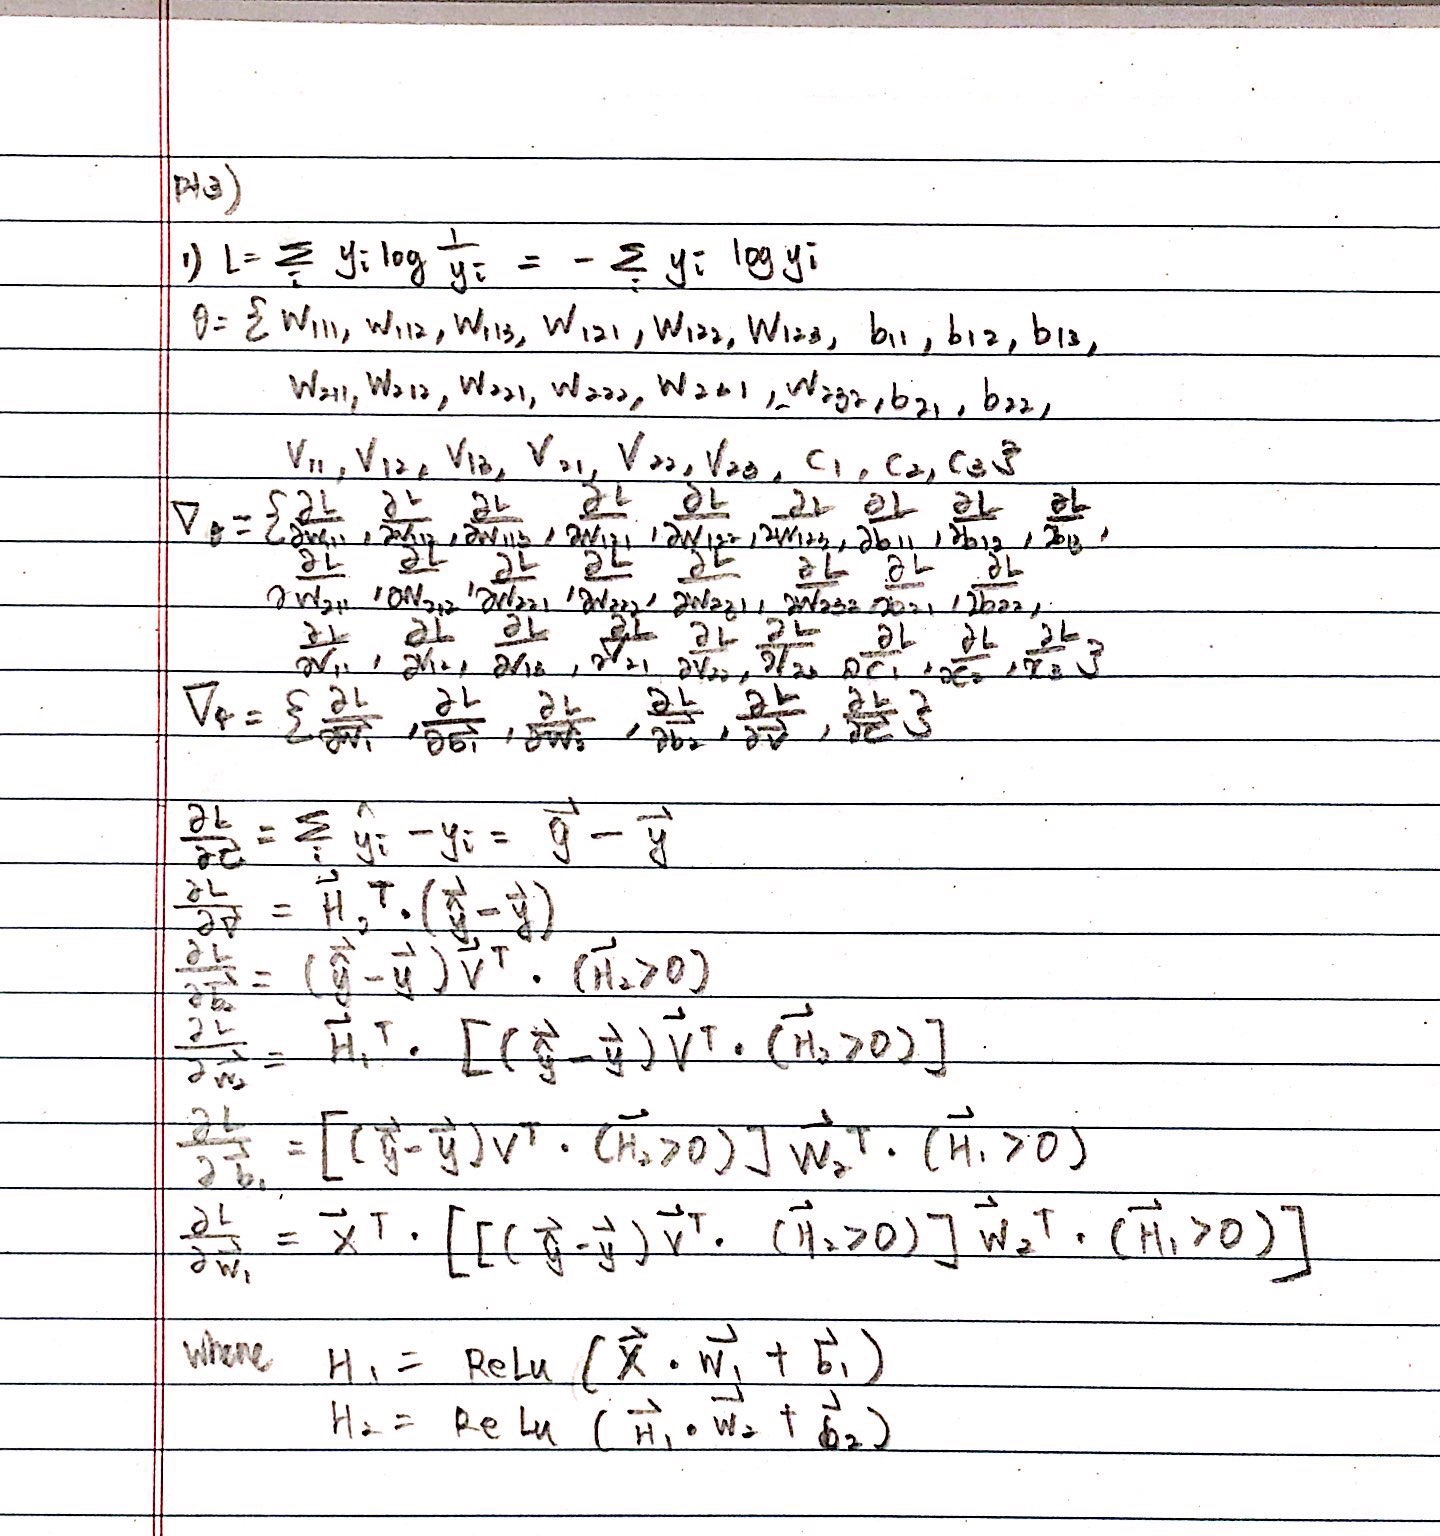 pt3)
1) L = Σ_i y_i log 1/y_i = - Σ_i y_i log y_i
θ = { W111, W112, W113, W121, W122, W123, b11, b12, b13,
W211, W212, W221, W222, W231, W232, b21, b22,
V11, V12, V13, V21, V22, V23, C1, C2, C3 }
∇θ = { ∂L/∂W111, ∂L/∂W112, ∂L/∂W113, ∂L/∂W121, ∂L/∂W122, ∂L/∂W123, ∂L/∂b11, ∂L/∂b12, ∂L/∂b13,
∂L/∂W211, ∂L/∂W212, ∂L/∂W221, ∂L/∂W222, ∂L/∂W231, ∂L/∂W232, ∂L/∂b21, ∂L/∂b22,
∂L/∂V11, ∂L/∂V12, ∂L/∂V13, ∂L/∂V21, ∂L/∂V22, ∂L/∂V23, ∂L/∂C1, ∂L/∂C2, ∂L/∂C3 }
∇θ = { ∂L/∂W⃗1, ∂L/∂b⃗1, ∂L/∂W⃗2, ∂L/∂b⃗2, ∂L/∂V⃗, ∂L/∂C⃗ }
∂L/∂C⃗ = Σ_i ŷ_i - y_i = y⃗ - y⃗
∂L/∂V⃗ = H⃗2^T · (ŷ⃗ - y⃗)
∂L/∂b⃗2 = (ŷ⃗ - y⃗) V⃗^T · (H⃗2 > 0)
∂L/∂W⃗2 = H⃗1^T · [(ŷ⃗ - y⃗) V⃗^T · (H⃗2 > 0)]
∂L/∂b⃗1 = [(ŷ⃗ - y⃗) V^T · (H⃗2 > 0)] W⃗2^T · (H⃗1 > 0)
∂L/∂W⃗1 = X⃗^T · [[(ŷ⃗ - y⃗) V⃗^T · (H⃗2 > 0)] W⃗2^T · (H⃗1 > 0)]
where H1 = ReLu (X⃗ · W⃗1 + b⃗1)
H2 = ReLu (H⃗1 · W⃗2 + b⃗2)